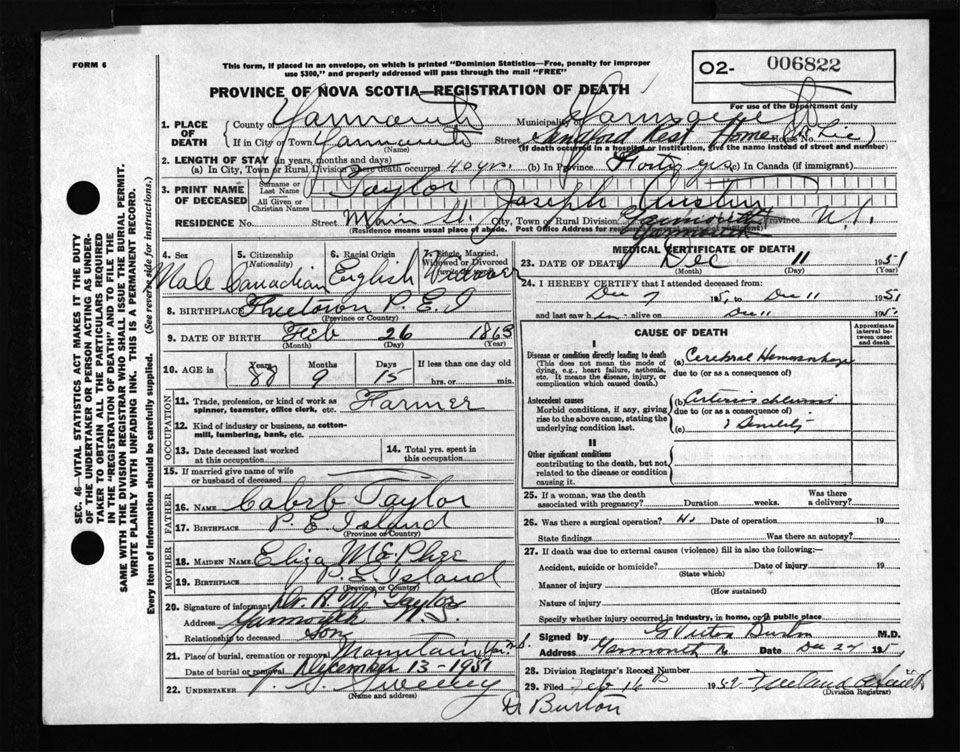 FORM 6
This form, if placed in an envelope, on which is printed "Dominion Statistics—Free, penalty for improper
use $300," and properly addressed will pass through the mail "FREE"
O2- 006822
PROVINCE OF NOVA SCOTIA—REGISTRATION OF DEATH
For use of the Department only
1. PLACE OF DEATH
County of Yarmouth Municipality of
If in City or Town Yarmouth Street Rest Home House No.
(Name) (If death occurred in a hospital or institution, give the name instead of street and number)
2. LENGTH OF STAY (in years, months and days)
(a) In City, Town or Rural Division where death occurred 40 yrs. (b) In Province Forty yrs (c) In Canada (if immigrant)
3. PRINT NAME OF DECEASED
Surname or Last Name Taylor
All Given or Christian Names Joseph Austin
RESIDENCE No. Street Main St. City, Town or Rural Division Yarmouth Province N.S.
(Residence means usual place of abode. Post Office Address for residents
4. Sex Male
5. Citizenship (Nationality) Canadian
6. Racial Origin English
7. Single, Married, Widowed or Divorced Widower
8. BIRTHPLACE Freetown P.E.I
(Province or Country)
9. DATE OF BIRTH Feb 26 1863
(Month) (Day) (Year)
10. AGE in Years 88 Months 9 Days 15 If less than one day old hrs. or min.
OCCUPATION
11. Trade, profession, or kind of work as spinner, teamster, office clerk, etc. Farmer
12. Kind of industry or business, as cotton-mill, lumbering, bank, etc.
13. Date deceased last worked at this occupation
14. Total yrs. spent in this occupation
15. If married give name of wife or husband of deceased
FATHER
16. Name Caleb Taylor
17. Birthplace P.E. Island
MOTHER
18. MAIDEN NAME Eliza McPhee
19. BIRTHPLACE P.E. Island
(Province or Country)
20. Signature of informant A. M. Taylor
Address Yarmouth N.S.
Relationship to deceased Son
21. Place of burial, cremation or removal Mountain
Date of burial or removal December 13-1951
22. UNDERTAKER Sweeney
(Name and address)
MEDICAL CERTIFICATE OF DEATH
23. DATE OF DEATH Dec 11 1951
(Month) (Day) (Year)
24. I HEREBY CERTIFY that I attended deceased from:
Dec 7 195 to Dec 11 1951
and last saw him alive on Dec 11 195
CAUSE OF DEATH
Approximate interval between onset and death
I
Disease or condition directly leading to death
(This does not mean the mode of dying, e.g., heart failure, asthenia, etc. It means the disease, injury, or complication which caused death.)
(a) Cerebral Hemorrhage
due to (or as a consequence of)
Antecedent causes
Morbid conditions, if any, giving rise to the above cause, stating the underlying condition last.
(b) Arteriosclerosis
due to (or as a consequence of)
(c) Senility
II
Other significant conditions
contributing to the death, but not related to the disease or condition causing it
25. If a woman, was the death associated with pregnancy? Duration weeks. Was there a delivery?
26. Was there a surgical operation? No Date of operation 19
State findings Was there an autopsy?
27. If death was due to external causes (violence) fill in also the following:—
Accident, suicide or homicide? Date of injury 19
(State which)
Manner of injury
(How sustained)
Nature of injury
Specify whether injury occurred in industry, in home, or in public place
Signed by G Victor Burton M.D.
Address Yarmouth N.S. Date Dec 195
28. Division Registrar's Record Number
29. Filed Feb 16 1952
(Division Registrar)
Dr Burton
SEC. 46—VITAL STATISTICS ACT MAKES IT THE DUTY
OF THE UNDERTAKER OR PERSON ACTING AS UNDER-
TAKER TO OBTAIN ALL THE PARTICULARS REQUIRED
IN THE "REGISTRATION OF DEATH" AND TO FILE THE
SAME WITH THE DIVISION REGISTRAR WHO SHALL ISSUE THE BURIAL PERMIT.
WRITE PLAINLY WITH UNFADING INK. THIS IS A PERMANENT RECORD.
Every item of information should be carefully supplied. (See reverse side for instructions.)